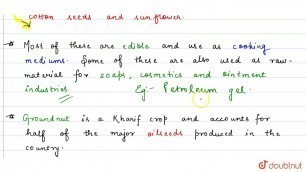 cotton seeds and sunflower.
Most of these are edible and use as cooking
mediums. Some of these are also used as raw-
material for soaps, cosmetics and ointment
industries. Eg:- Petroleum gel.
Groundnut is a Kharif crop and accounts for
half of the major oilseeds produced in the
country.
doubtnut